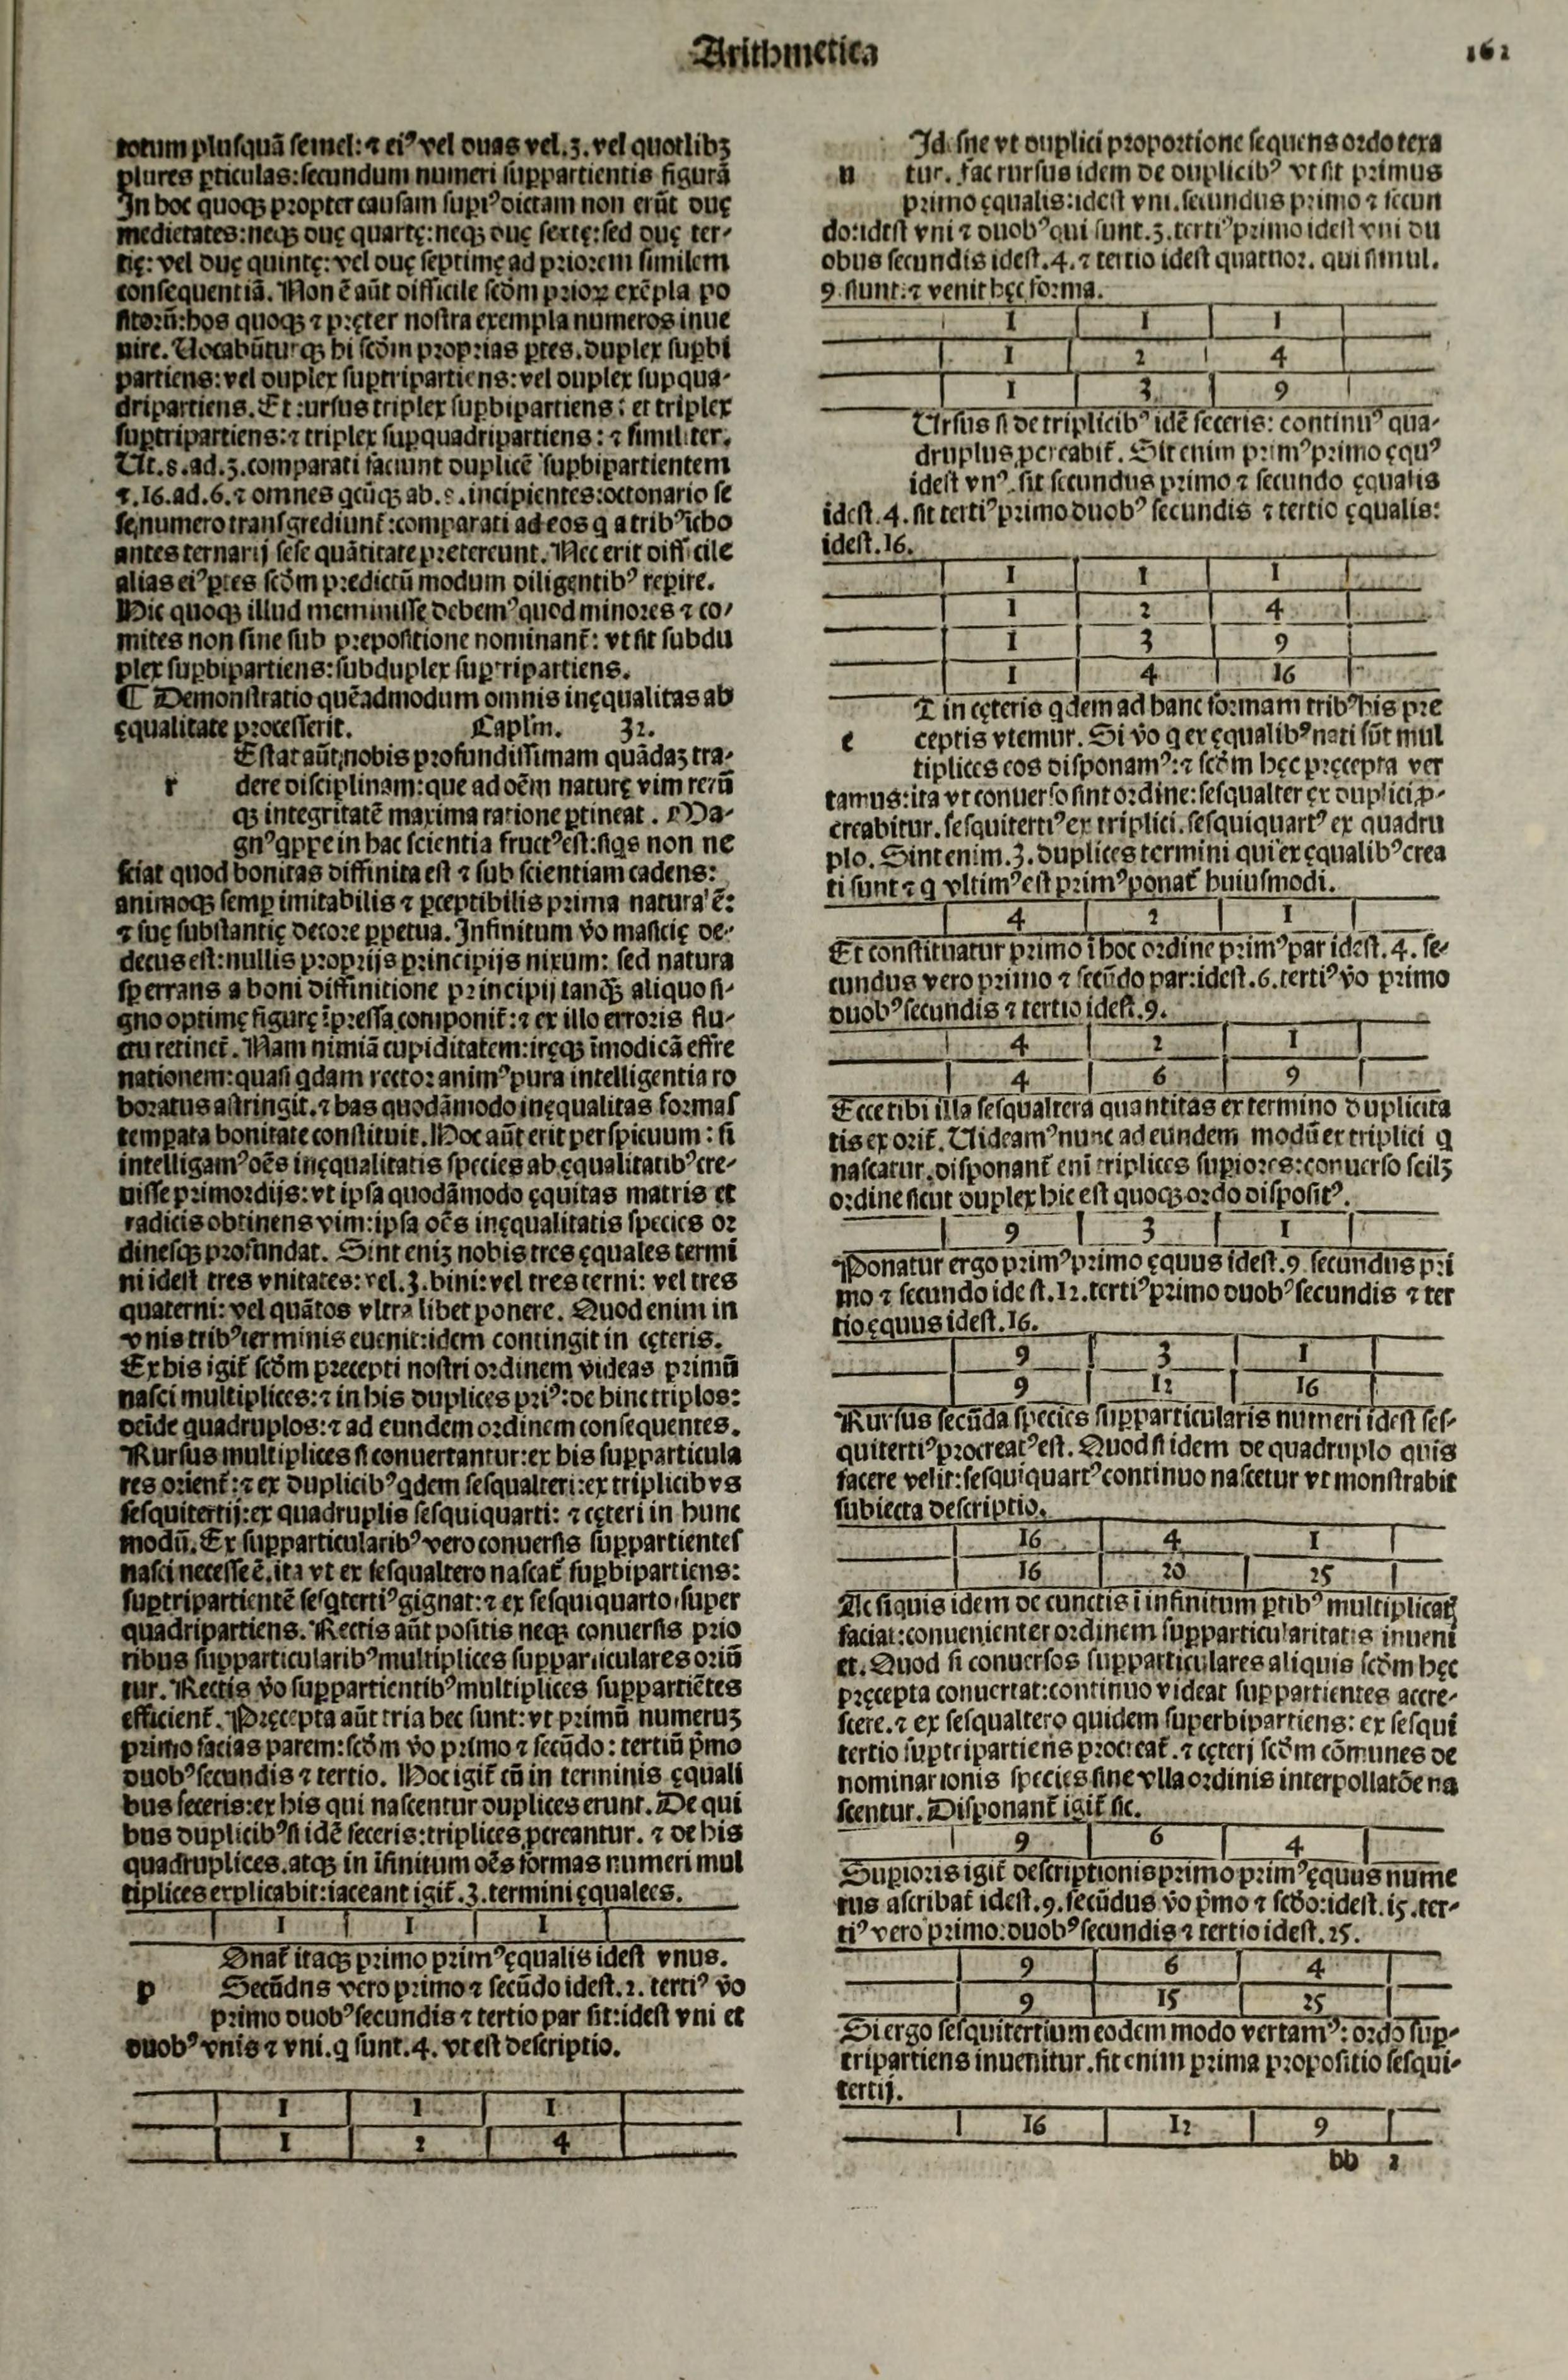 Arithmetica
162
totum plusquã semel: ⁊ ei⁹ vel duas vel.3. vel quotlibȝ
plures pticulas: secundum numeri suppartientis figurã
In hoc quoqȝ propter causam supi⁹dictam non erũt duę
medietates: neqȝ duę quartę: neqȝ duę sextę: sed duę ter-
tię: vel duę quintę: vel duę septimę ad priorem similem
consequentiã. Non ẽ aũt difficile scd̃m prioꝝ exẽpla po
sitorũ: hos quoqȝ ⁊ pręter nostra exempla numeros inue
nire. Uocabũturqȝ hi scd̃m proprias ptes. duplex supbi
partiens: vel duplex suptripartiens: vel duplex supqua-
dripartiens. Et rursus triplex supbipartiens: et triplex
suptripartiens: ⁊ triplex supquadripartiens: ⁊ similiter.
Ut.8.ad.3.comparati faciunt duplicẽ supbipartientem
⁊.16.ad.6.⁊ omnes qcũqȝ ab.8.incipientes: octonario se
se numero transgrediunt̃: comparati ad eos q a trib⁹ icho
antes ternarij sese quãtitate pretereunt. Nec erit difficile
alias ei⁹ ptes scd̃m predictũ modum diligentib⁹ repire.
Hic quoqȝ illud meminisse debem⁹ quod minores ⁊ co-
mites non sine sub prepositione nominant̃: vt sit subdu
plex supbipartiens: subduplex suptripartiens.
¶ Demonstratio quẽadmodum omnis inęqualitas ab
ęqualitate processerit. Caplm̃. 32.
Estat aũt nobis profundissimam quãdaȝ tra-
r dere disciplinam: que ad oẽm naturę vim rerũ
qȝ integritatẽ maxima ratione ptineat. Ma-
gn⁹ qppe in hac scientia fruct⁹ est: siqs non ne
sciat quod bonitas diffinita est ⁊ sub scientiam cadens:
animoqȝ semp imitabilis ⁊ pceptibilis prima natura ẽ:
⁊ suę substantię decore ppetua. Infinitum v̊o malicię de-
decus est: nullis proprijs principijs nixum: sed natura
sp errans a boni diffinitione principij tanqȝ aliquo si-
gno optimę figurę ĩpressa componit̃: ⁊ ex illo erroris flu-
ctu retinet̃. Nam nimiã cupiditatem: iręqȝ ĩmodicã effre
nationem: quasi qdam rector anim⁹ pura intelligentia ro
boratus astringit. ⁊ has quodãmodo inęqualitas formas
tempata bonitate constituit. Hoc aũt erit perspicuum: si
intelligam⁹ oẽs inęqualitatis species ab ęqualitatib⁹ cre-
uisse primordijs: vt ipsa quodãmodo ęquitas matris et
radicis obtinens vim: ipsa oẽs inęqualitatis species or
dinesqȝ profundat. Sint eniȝ nobis tres ęquales termi
ni idest tres vnitates: vel.3.bini: vel tres terni: vel tres
quaterni: vel quãtos vltra libet ponere. Quod enim in
vnis trib⁹ terminis euenit: idem contingit in cęteris.
Ex his igit̃ scd̃m precepti nostri ordinem videas primũ
nasci multiplices: ⁊ in his duplices pri⁹: dehinc triplos:
deĩde quadruplos: ⁊ ad eundem ordinem consequentes.
Rursus multiplices si conuertantur: ex his supparticula
res orient̃: ⁊ ex duplicib⁹ qdem sesqualteri: ex triplicibvs
sesquitertij: ex quadruplis sesquiquarti: ⁊ cęteri in hunc
modũ. Ex supparticularib⁹ vero conuersis suppartientes
nasci necesse ẽ. ita vt ex sesqualtero nascat̃ supbipartiens:
suptripartientẽ sesqterti⁹ gignat: ⁊ ex sesquiquarto super
quadripartiens. Rectis aũt positis neqȝ conuersis prio
ribus supparticularib⁹ multiplices supparticulares oriũ
tur. Rectis v̊o suppartientib⁹ multiplices suppartiẽtes
efficient̃. Pręcepta aũt tria hec sunt: vt primũ numeruȝ
primo facias parem: scd̃m v̊o primo ⁊ secũdo: tertiũ p̃mo
duob⁹ secundis ⁊ tertio. Hoc igit̃ cũ in terminis ęquali
bus feceris: ex his qui nascentur duplices erunt. De qui
bus duplicib⁹ si idẽ feceris: triplices pcreantur. ⁊ de his
quadruplices. atqȝ in ĩfinitum oẽs formas numeri mul
tiplices explicabit: iaceant igit̃.3.termini ęqualees.
1 1 1
Onat̃ itaqȝ primo prim⁹ ęqualis idest vnus.
p Secũdns vero primo ⁊ secũdo idest.2. terti⁹ v̊o
primo duob⁹ secundis ⁊ tertio par sit: idest vni et
duob⁹ vnis ⁊ vni. q sunt.4. vt est descriptio.
1 1 1
1 2 4
Id sne vt duplici proportione sequens ordo texa
u tur. fac rursus idem de duplicib⁹ vt sit primus
primo ęqualis: idest vni. secundus primo ⁊ secun
do: idest vni ⁊ duob⁹ qui sunt.3.terti⁹ primo idest vni du
obus secundis idest.4.⁊ tertio idest quatuor. qui simul.
9 fiunt. ⁊ venit hęc forma.
1 1 1
1 2 4
1 3 9
Ursus si de triplicib⁹ idẽ feceris: continu⁹ qua-
druplus pcreabit̃. Sit enim prim⁹ primo ęqu⁹
idest vn⁹. sit secundus primo ⁊ secundo ęqualis
idest.4.sit terti⁹ primo duob⁹ secundis ⁊ tertio ęqualis:
idest.16.
1 1 1
1 2 4
1 3 9
1 4 16
T in cęteris qdem ad hanc formam trib⁹ his pre
e ceptis vtemur. Si v̊o q ex ęqualib⁹ nati sũt mul
tiplices eos disponam⁹: ⁊ scd̃m hęc pręcepta ver
tamus: ita vt conuerso sint ordine: sesqualter ex duplici p-
creabitur. sesquiterti⁹ ex triplici. sesquiquart⁹ ex quadru
plo. Sint enim.3.duplices termini qui ex ęqualib⁹ crea
ti sunt ⁊ q vltim⁹ est prim⁹ ponat̃ huiusmodi.
4 2 1
Et constituatur primo ĩ hoc ordine prim⁹ par idest.4. se-
cundus vero primo ⁊ secũdo par: idest.6.terti⁹ v̊o primo
duob⁹ secundis ⁊ tertio idest.9.
4 2 1
4 6 9
Ecce tibi illa sesqualtera quantitas ex termino duplicita
tis exorit̃. Uideam⁹ nunc ad eundem modũ ex triplici q
nascatur. disponant̃ enĩ triplices supiores: conuerso scilȝ
ordine sicut duplex hic est quoqȝ ordo disposit⁹.
9 3 1
Ponatur ergo prim⁹ primo ęquus idest.9 secundus pri
mo ⁊ secundo idest.12.terti⁹ primo duob⁹ secundis ⁊ ter
tio ęquus idest.16.
9 3 1
9 12 16
Rursus secũda species supparticularis numeri idest ses-
quiterti⁹ procreat⁹ est. Quod si idem de quadruplo quis
facere velit: sesquiquart⁹ continuo nascetur vt monstrabit
subiecta descriptio.
16 4 1
16 20 25
Ac siquis idem de cunctis ĩ infinitum ptib⁹ multiplicat̃
faciat: conuenienter ordinem supparticularitatis inueni
et. Quod si conuersos supparticulares aliquis scd̃m hęc
pręcepta conuertat: continuo videat suppartientes accre-
scere. ⁊ ex sesqualtero quidem superbipartiens: ex sesqui
tertio suptripartiens procreat̃. ⁊ cęteri scd̃m cõmunes de
nominationis species sine vlla ordinis interpollatõe na
scentur. Disponant̃ igit̃ sic.
9 6 4
Supioris igit̃ descriptionis primo prim⁹ ęquus nume
rus ascribat̃ idest.9.secũdus v̊o p̃mo ⁊ scd̃o: idest.15.ter-
ti⁹ vero primo: duob⁹ secundis ⁊ tertio idest.25.
9 6 4
9 15 25
Si ergo sesquitertium eodem modo vertam⁹: ordo sup-
tripartiens inuenitur. fit enim prima propositio sesqui-
tertij.
16 12 9
bb 2